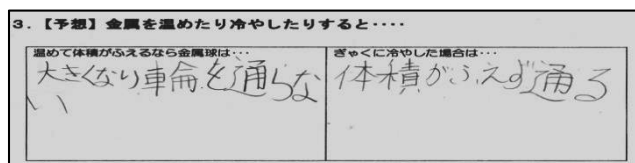 3.【予想】金属を温めたり冷やしたりすると・・・・
温めて体積がふえるなら金属球は・・・
大きくなり車輪を通らな
い
ぎゃくに冷やした場合は・・・
体積がふえず通る